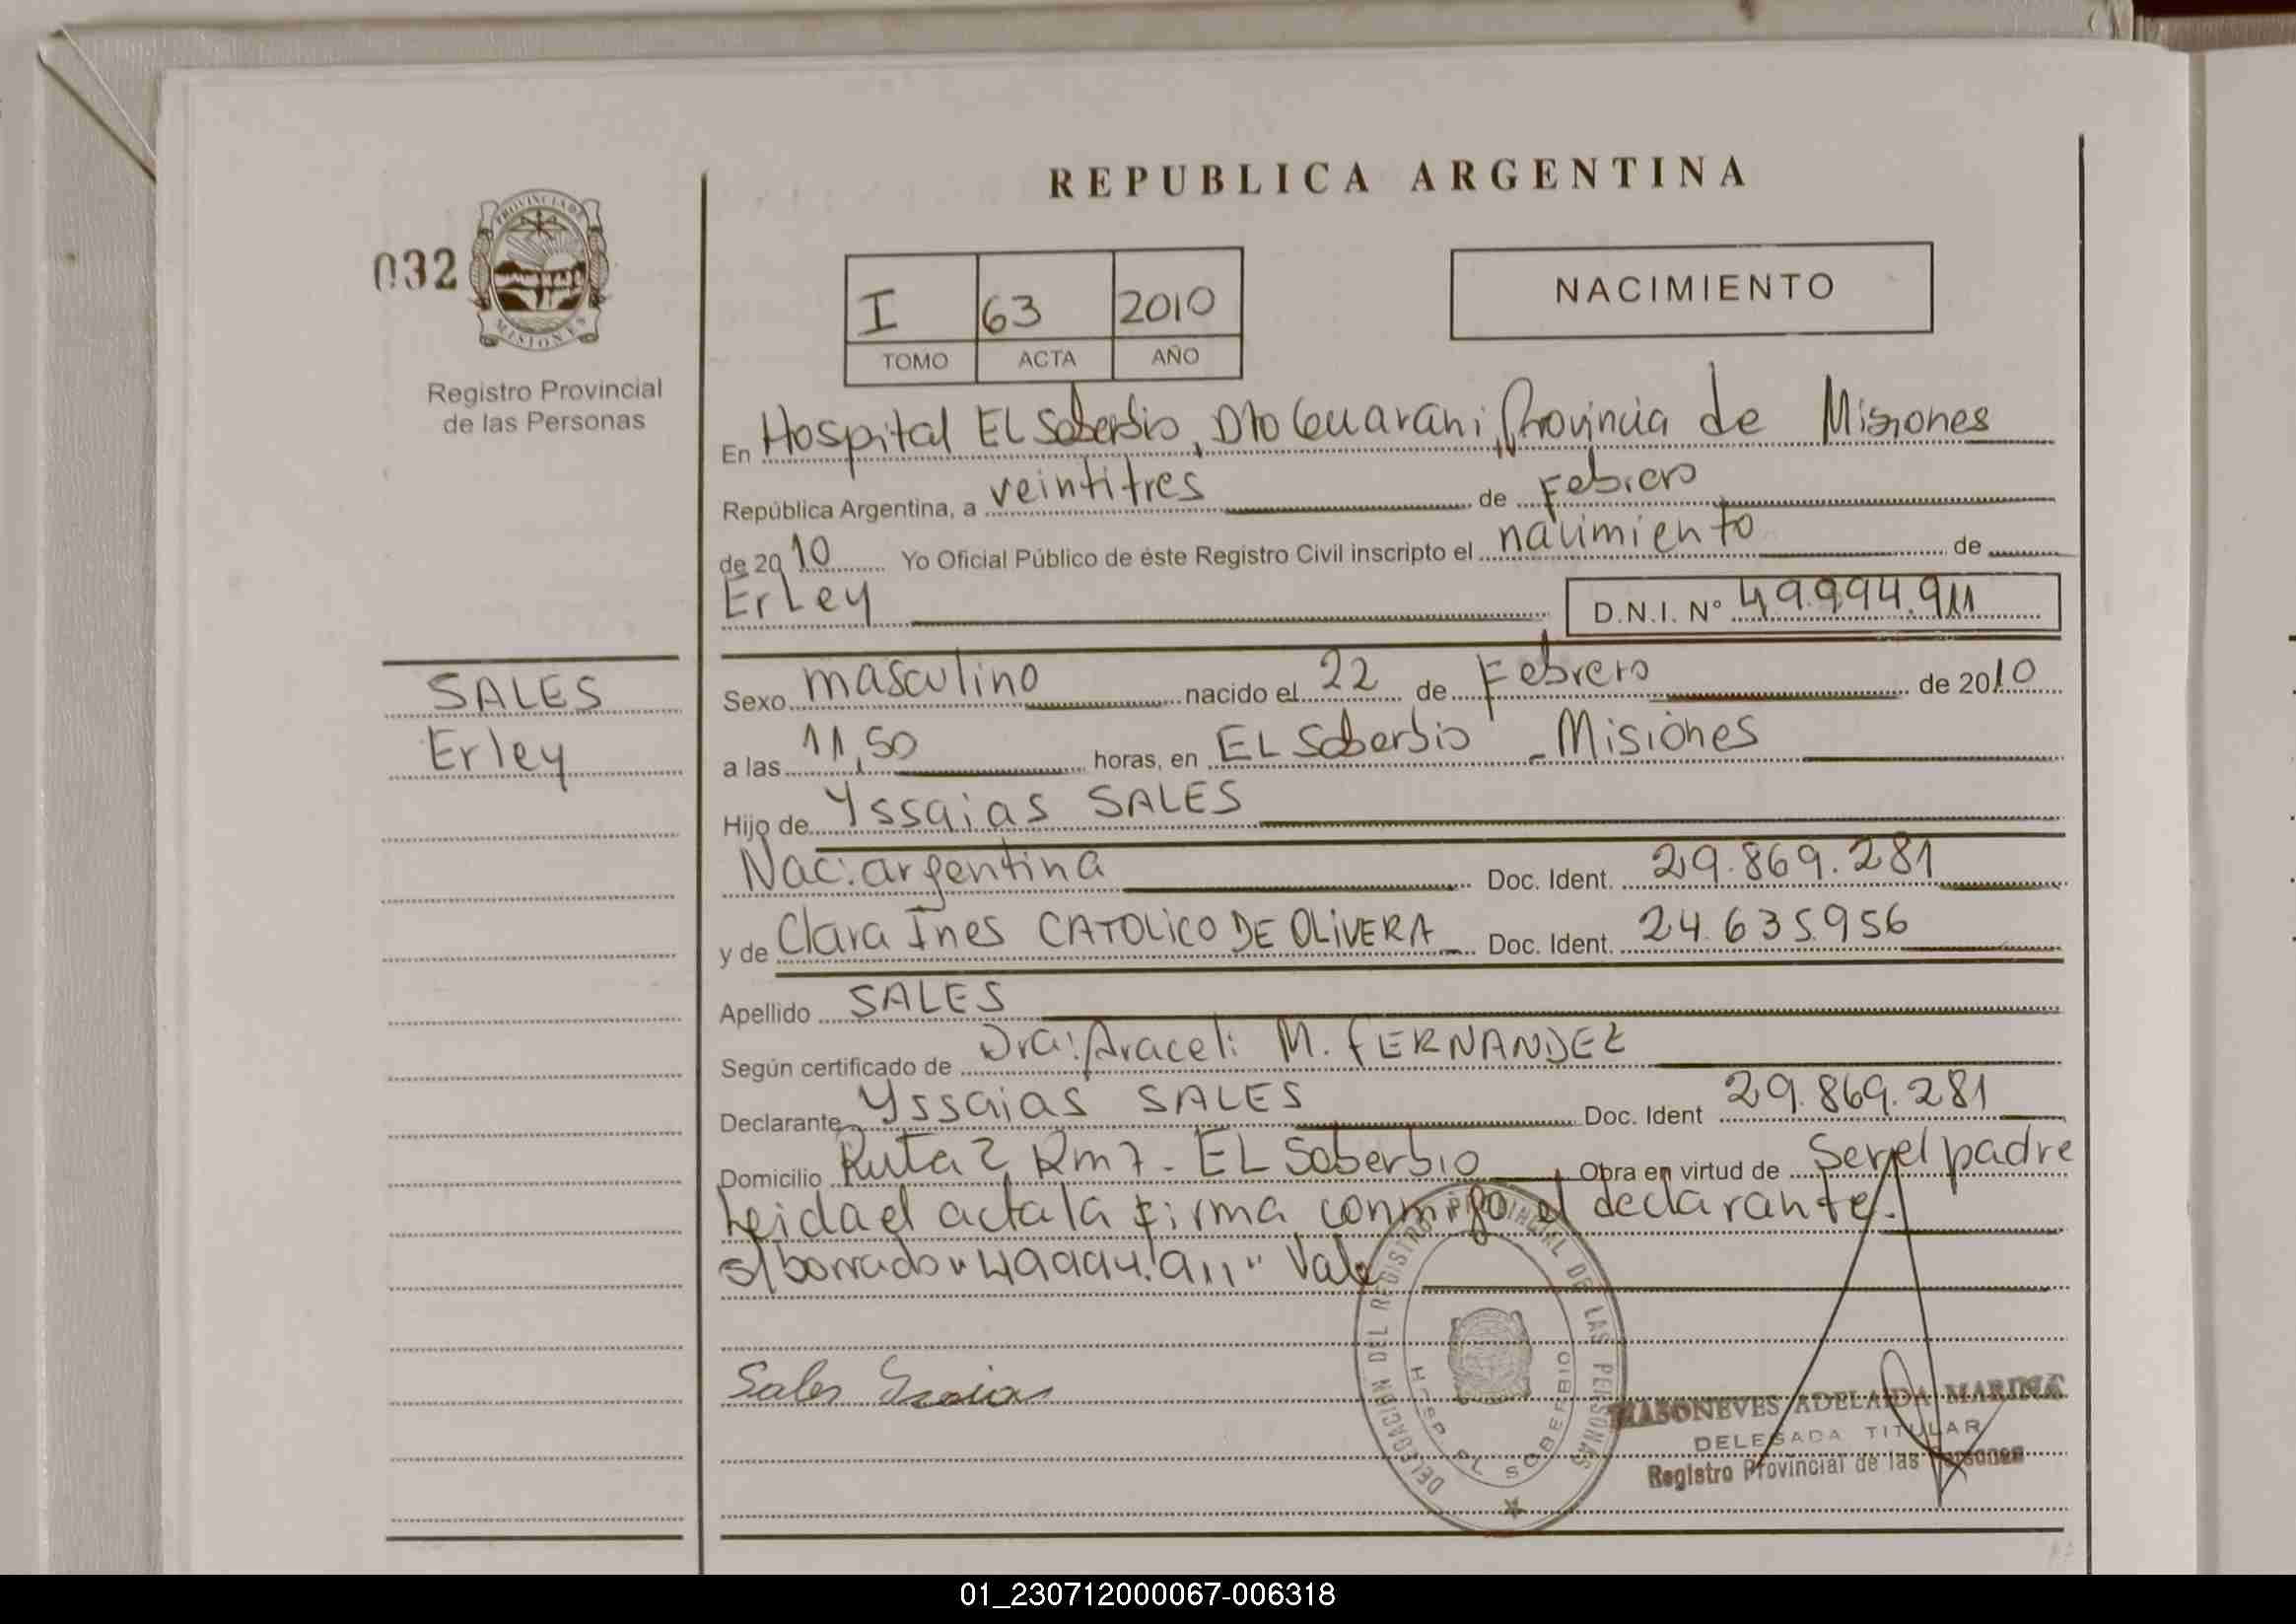 REPUBLICA ARGENTINA
032
PROVINCIA DE
MISIONES
Registro Provincial
de las Personas
I 63 2010
TOMO ACTA AÑO
NACIMIENTO
En Hospital EL Soberbio, Dto Guarani, Provincia de Misiones
República Argentina, a veintitres de Febrero
de 2010 Yo Oficial Público de éste Registro Civil inscripto el nacimiento de
Erley D.N.I. N° 49.994.911
SALES
Erley
Sexo masculino nacido el 22 de Febrero de 2010
a las 11,50 horas, en EL Soberbio - Misiones
Hijo de Yssaias SALES
Nac: argentina Doc. Ident. 29.869.281
y de Clara Ines CATOLICO DE OLIVERA Doc. Ident. 24.635956
Apellido SALES
Según certificado de Dra: Araceli M. FERNANDEZ
Declarante Yssaias SALES Doc. Ident 29.869.281
Domicilio Ruta 2 Km 7 - EL Soberbio Obra en virtud de Ser el padre
Leida el acta la firma conmigo el declarante.
s/borrado "49994.911" Vale
Sales
DELEGACION DEL REGISTRO PROVINCIAL DE LAS PERSONAS
HOSP. EL SOBERBIO
MASONEVES ADELAIDA MARINA
DELEGADA TITULAR
Registro Provincial de las Personas
01_230712000067-006318